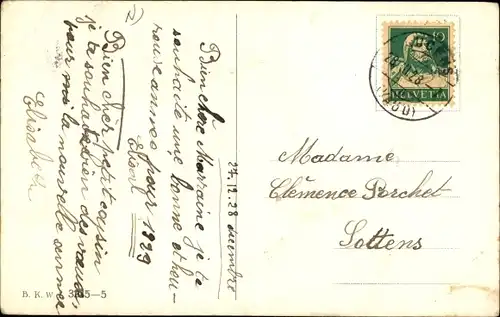 2)
Bien cher petit copin
je te souhaite bien des vœux,
pour mi la nouvelle année
Elisabeth
Bien chère Marraine je te
souhaite une bonne et heu-
reuse année pour 1929
27.12.28 décembre
HELVETIA
(VAUD)
Madame
Clémence Porchet
Sottens
B. K. W. 3765-5